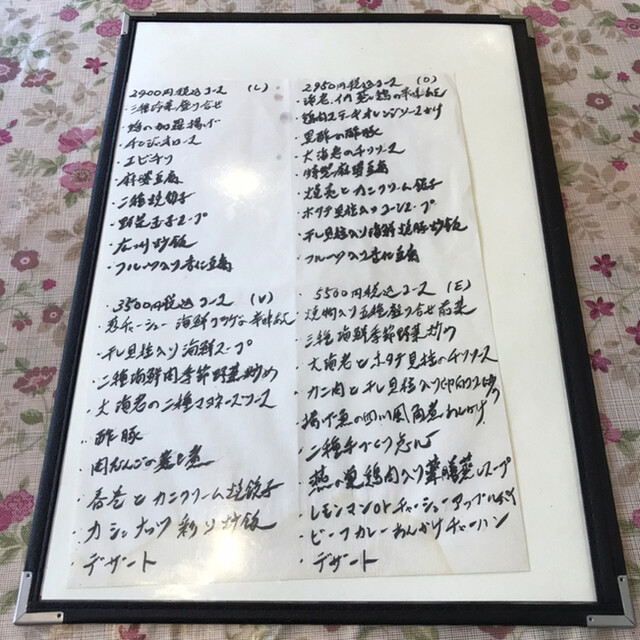 2900円税込コース (L)
・二種冷菜盛り合せ
・鶏の
・チンジャオロース
・エビチリ
・麻婆豆腐
・二種焼餃子
・野菜玉子スープ
・広州炒飯
・フルーツ入り杏仁豆腐
・3500円税込コース (V)
・チャーシュー 海鮮
・干し貝柱入り海鮮スープ
・二種海鮮肉季節野菜炒め
・大海老の二種マヨネーズソース
・酢豚
・肉だんごの煮
・春巻とカニクリーム焼餃子
・カシューナッツ 炒飯
・デザート
2950円税込コース (O)
・海老、蒸し鶏の
・鶏肉ステーキオレンジソースかけ
・黒酢の酢豚
・大海老のチリソース
・麻婆豆腐
・とカニクリーム餃子
・ホタテ貝柱入りコーンスープ
・干し貝柱入り海鮮炒飯
・フルーツ入り杏仁豆腐
・5500円税込コース (E)
・焼物入り五種盛り合せ前菜
・三種海鮮季節野菜炒め
・大海老とホタテ貝柱のチリソース
・カニ肉と干し貝柱入り
・揚げ魚の四川風あんかけ
・二種手づくり点心
・燕の巣鶏肉入り薬膳蒸しスープ
・レモンマンorチャーシューアップル
・ビーフカレーあんかけチャーハン
・デザート